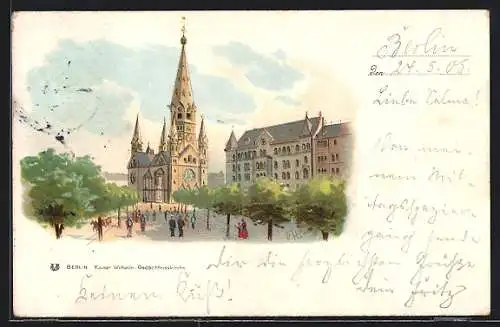 Berlin
den 24.5.05.
Liebe Selma!
Von mei-
nem Mit-
tagsspazier-
gang sende
dir die herzlichsten Grüße
dein Fritz
Keinen Kuß!
BERLIN Kaiser Wilhelm-Gedächtniskirche